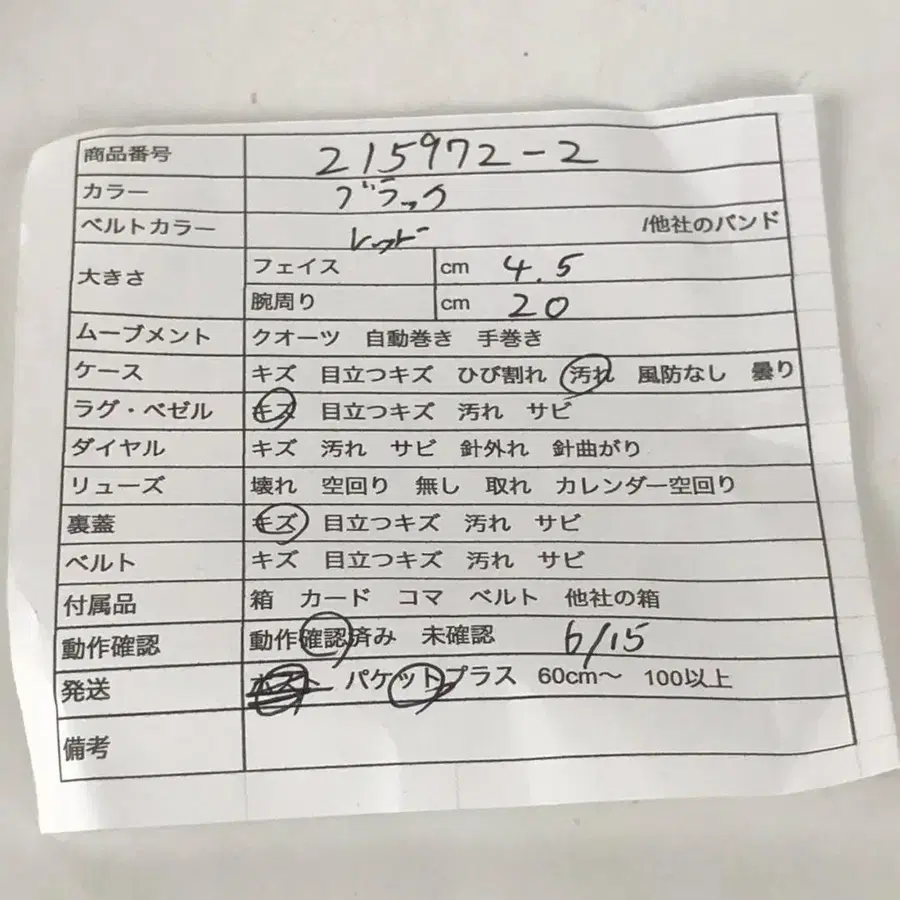 商品番号 215972-2
カラー ブラック
ベルトカラー レッド /他社のバンド
大きさ フェイス cm 4.5
腕周り cm 20
ムーブメント クオーツ 自動巻き 手巻き
ケース キズ 目立つキズ ひび割れ 汚れ 風防なし 曇り
ラグ・ベゼル キズ 目立つキズ 汚れ サビ
ダイヤル キズ 汚れ サビ 針外れ 針曲がり
リューズ 壊れ 空回り 無し 取れ カレンダー空回り
裏蓋 キズ 目立つキズ 汚れ サビ
ベルト キズ 目立つキズ 汚れ サビ
付属品 箱 カード コマ ベルト 他社の箱
動作確認 動作確認済み 未確認 6/15
発送 ポスト パケットプラス 60cm〜 100以上
備考